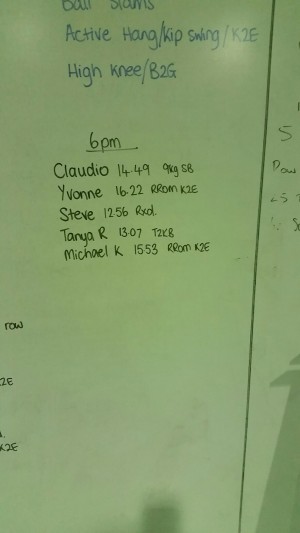 Ball Slams
Active Hang/Kip swing/K2E
High Knee/B2G
6pm
Claudio 14.49 9kg SB
Yvonne 16.22 RROM K2E
Steve 12.56 Rxd.
Tanya R 13.07 T2KB
Michael K 15.53 RROM K2E
5
row
2E
K2E